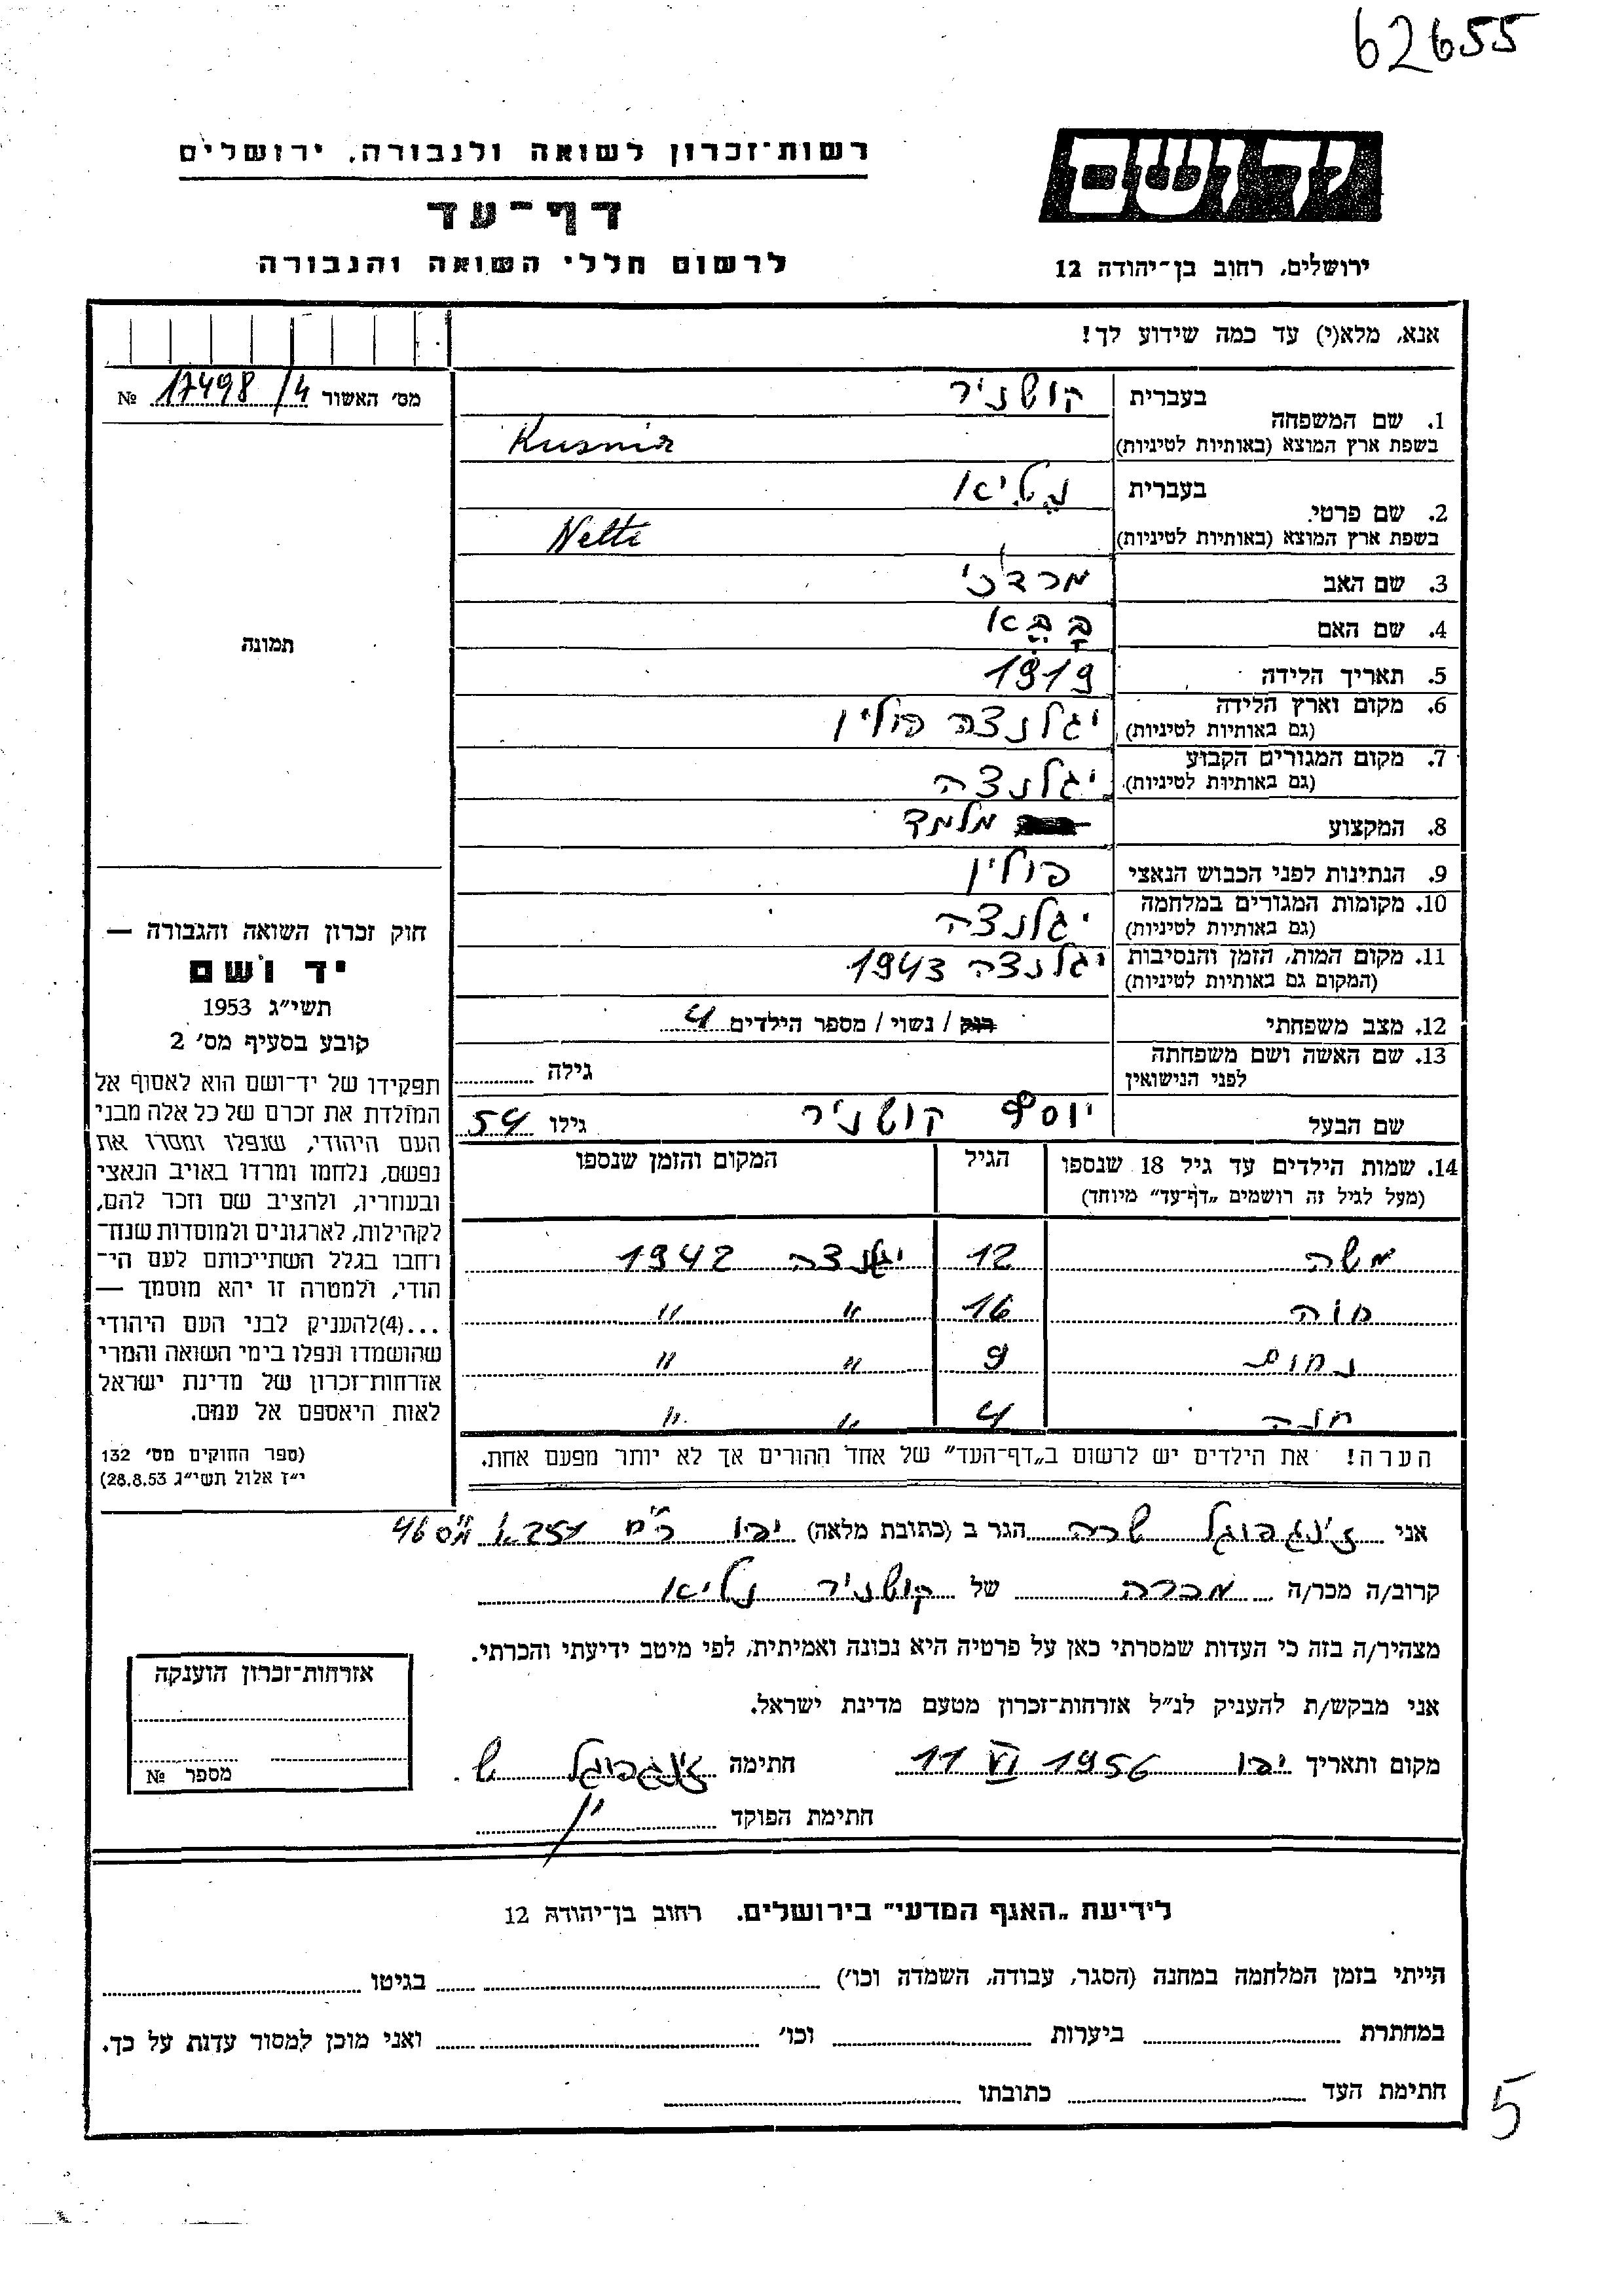 62655
רשות־זכרון לשואה ולגבורה, ירושלים
יד ושם
דף־עד
לרשום חללי השואה והגבורה
ירושלים, רחוב בן־יהודה 12
אנא, מלא(י) עד כמה שידוע לך!
מס׳ האשור 17498/4 №
1. שם המשפחה
בעברית קושניר
בשפת ארץ המוצא (באותיות לטיניות) Kusnir
2. שם פרטי
בעברית
בשפת ארץ המוצא (באותיות לטיניות) Netti
3. שם האב מרדכי
4. שם האם
5. תאריך הלידה 1919
6. מקום וארץ הלידה יגלנצה פולין
(גם באותיות לטיניות)
7. מקום המגורים הקבוע
(גם באותיות לטיניות) יגלנצה
8. המקצוע מלמד
9. הנתינות לפני הכבוש הנאצי פולין
10. מקומות המגורים במלחמה
(גם באותיות לטיניות) יגלנצה
11. מקום המות, הזמן והנסיבות יגלנצה 1943
(המקום גם באותיות לטיניות)
12. מצב משפחתי רווק / נשוי / מספר הילדים 4
13. שם האשה ושם משפחתה
לפני הנישואין גילה
שם הבעל יוסף קושניר גילו 54
14. שמות הילדים עד גיל 18 שנספו
(מעל לגיל זה רושמים „דף־עד” מיוחד)
הגיל
המקום והזמן שנספו
משה 12 יגלנצה 1942
חוה 16 " "
נחום 9 " "
חנה 4 " "
הערה! את הילדים יש לרשום ב„דף־העד” של אחד ההורים אך לא יותר מפעם אחת.
תמונה
חוק זכרון השואה והגבורה —
יד ושם
תשי״ג 1953
קובע בסעיף מס׳ 2
תפקידו של יד־ושם הוא לאסוף אל
המולדת את זכרם של כל אלה מבני
העם היהודי, שנפלו ומסרו את
נפשם, נלחמו ומרדו באויב הנאצי
ובעוזריו, ולהציב שם וזכר להם,
לקהילות, לארגונים ולמוסדות שנח־
רחבו בגלל השתייכותם לעם הי־
הודי, ולמטרה זו יהא מוסמך —
...(4)להעניק לבני העם היהודי
שהושמדו ונפלו בימי השואה והמרי
אזרחות־זכרון של מדינת ישראל
לאות היאספם אל עמם.
(ספר החוקים מס׳ 132
י״ז אלול תשי״ג 28.8.53)
אני שרה הגר ב (כתובת מלאה) יפו 46
קרוב/ה מכר/ה מכרה של קושניר
מצהיר/ה בזה כי העדות שמסרתי כאן על פרטיה היא נכונה ואמיתית, לפי מיטב ידיעתי והכרתי.
אני מבקש/ת להעניק לנ״ל אזרחות־זכרון מטעם מדינת ישראל.
מקום ותאריך יפו 11 VI 1956 חתימה ש.
חתימת הפוקד
אזרחות־זכרון הוענקה
מספר №
לידיעת „האגף המדעי” בירושלים. רחוב בן־יהודה 12
הייתי בזמן המלחמה במחנה (הסגר, עבודה, השמדה וכו׳) בגיטו
במחתרת ביערות וכו׳ ואני מוכן למסור עדות על כך.
חתימת העד כתובתו
5